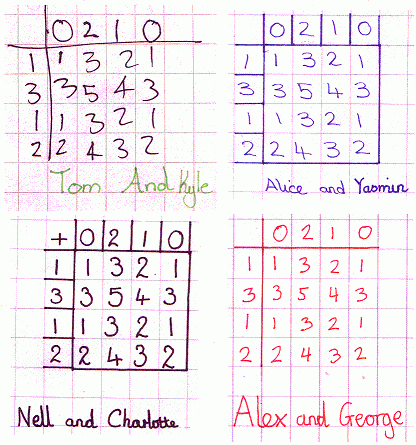 0 2 1 0
1 1 3 2 1
3 3 5 4 3
1 1 3 2 1
2 2 4 3 2
Tom And Kyle
0 2 1 0
1 1 3 2 1
3 3 5 4 3
1 1 3 2 1
2 2 4 3 2
Alice and Yasmin
+ 0 2 1 0
1 1 3 2 1
3 3 5 4 3
1 1 3 2 1
2 2 4 3 2
Nell and Charlotte
0 2 1 0
1 1 3 2 1
3 3 5 4 3
1 1 3 2 1
2 2 4 3 2
Alex and George